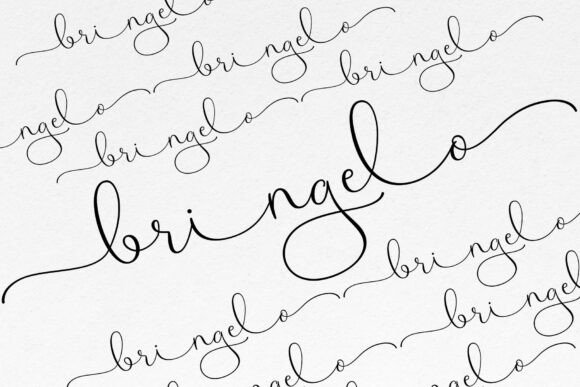 bringelo
bringelo
bringelo
ngelo
bringelo
bringelo
bringelo
bringelo
bringel
bringelo